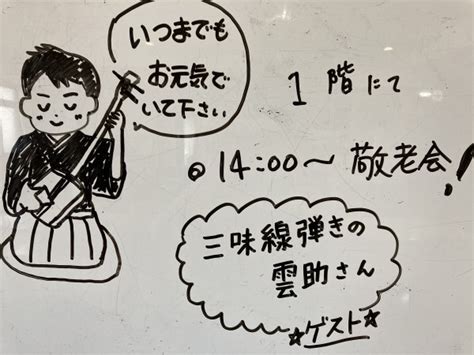 いつまでも
お元気で
いて下さい
1階にて
◎14:00〜敬老会!
三味線弾きの
雲助さん
☆ゲスト☆